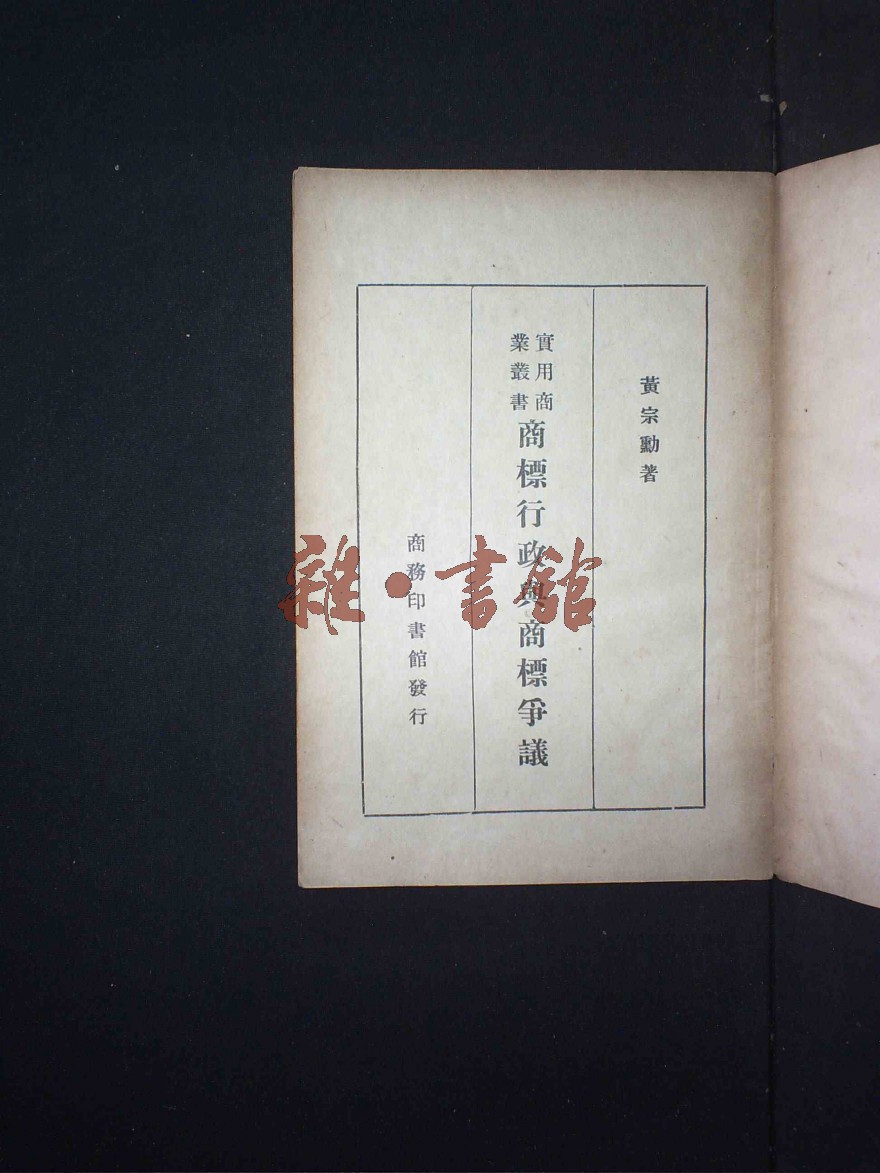 黃宗勳著
實用商
業叢書
商標行政與商標爭議
商務印書館發行
雜·書館